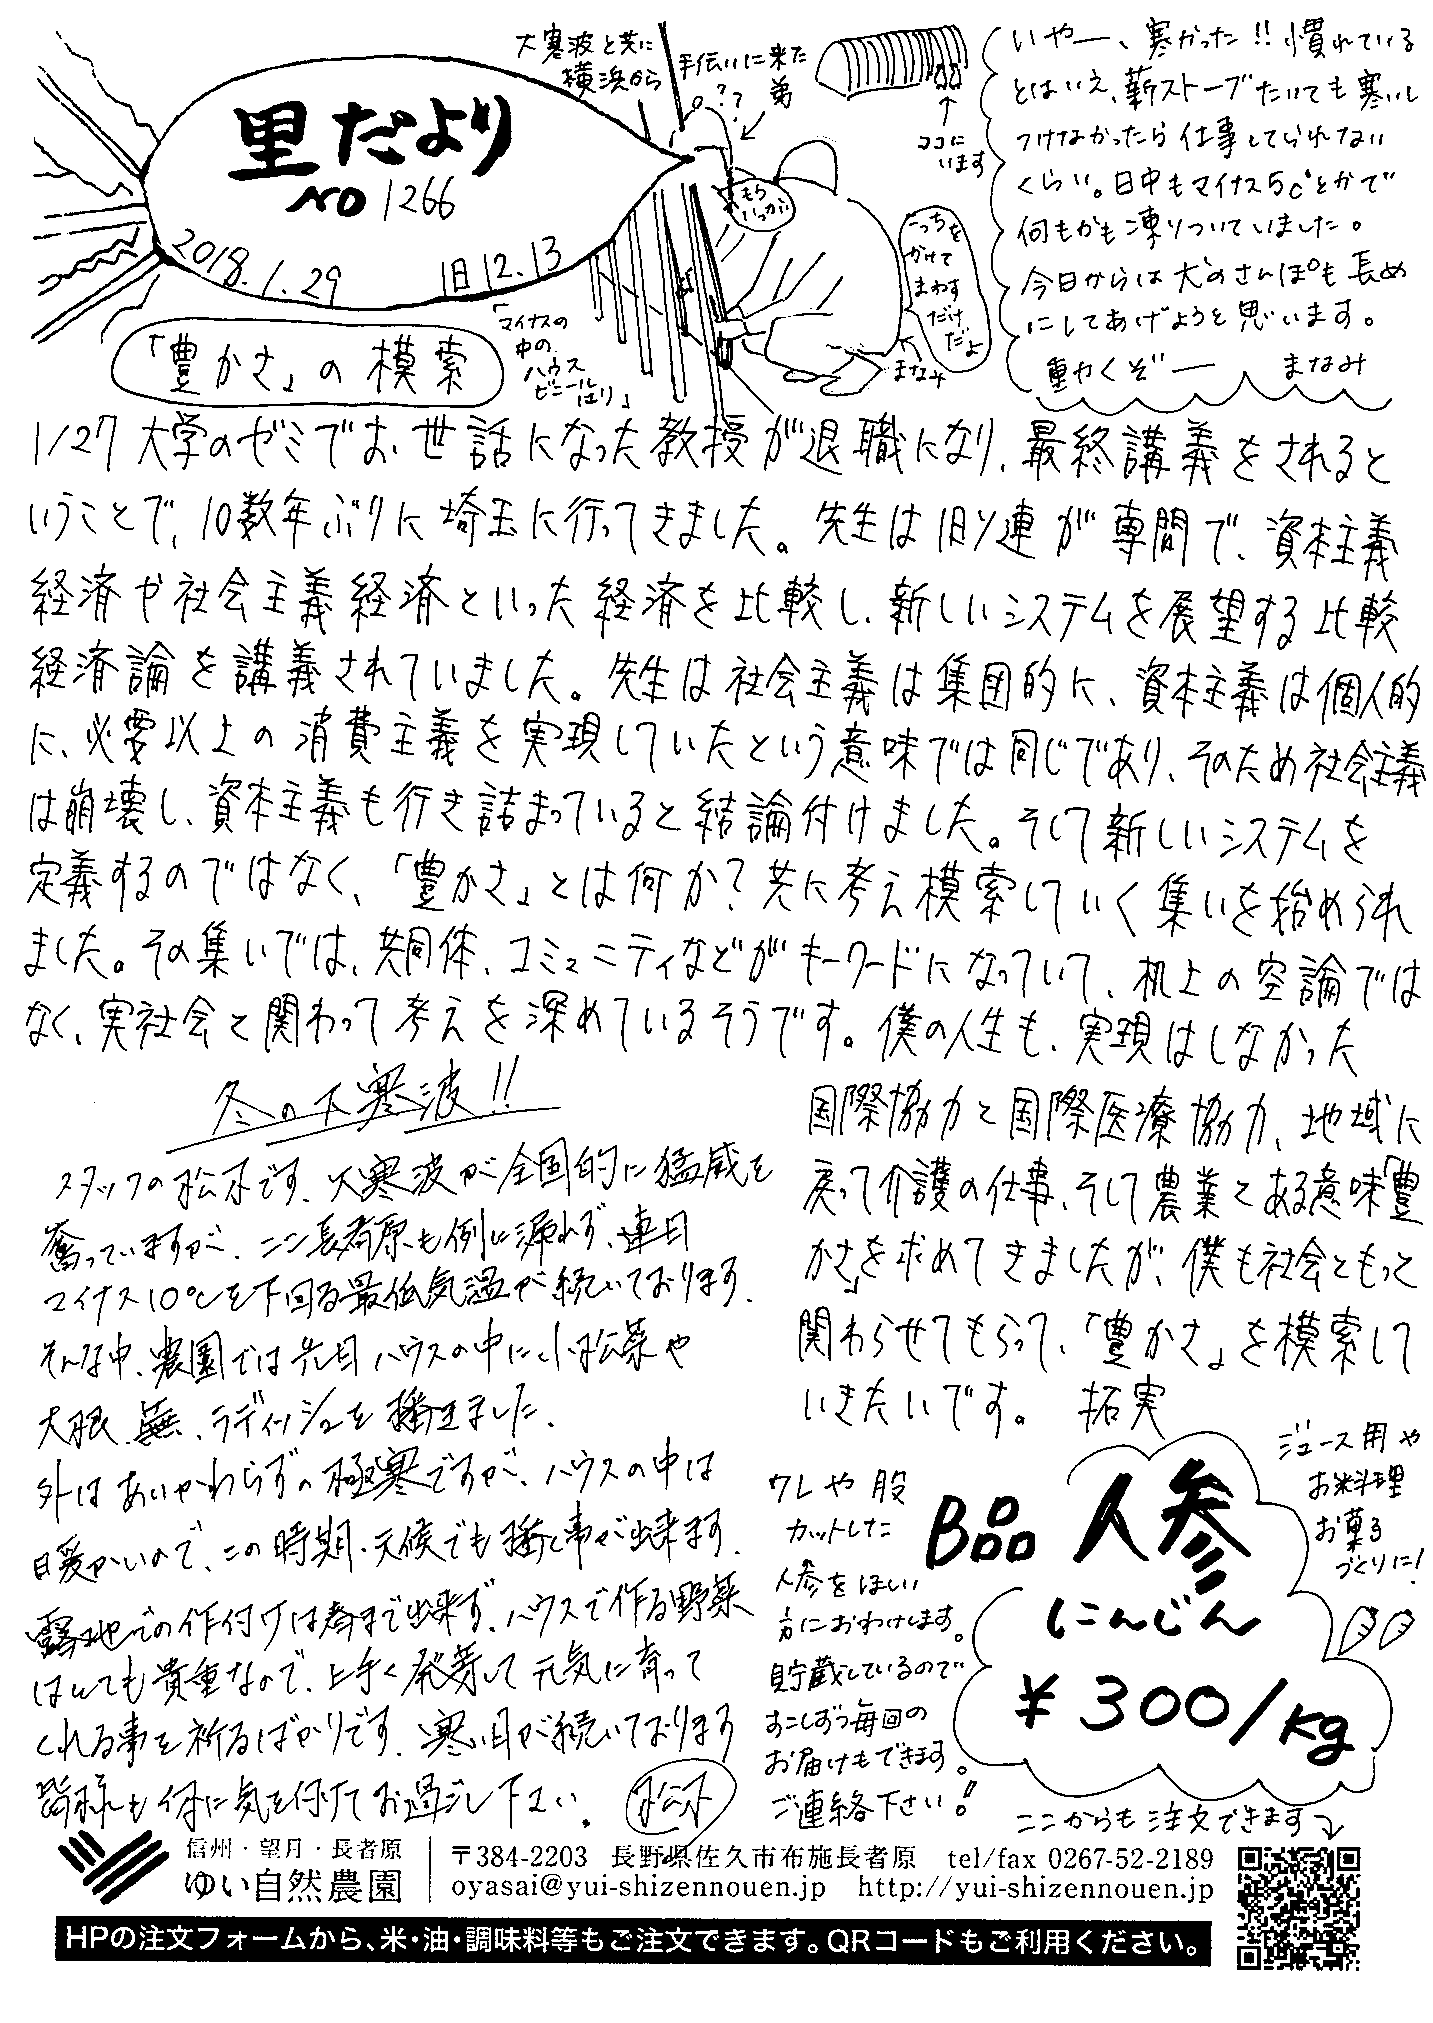 里だより
NO 1266
2018.1.29 旧12.13
大寒波と共に
横浜から
手伝いに来た
弟
??
もう
いっかい
ココに
います
こっちを
かけて
まわす
だけ
だよ
まなみ
「マイナスの
中の
ハウス
ビニール
はり」
いやー、寒かった!! 慣れている
とはいえ、薪ストーブたいても寒いし
つけなかったら仕事してられない
くらい。日中もマイナス5c°とかで
何もかも凍りついていました。
今日からは犬のさんぽも長め
にしてあげようと思います。
重やくぞー まなみ
「豊かさ」の模索
1/27 大学のゼミでお世話になった教授が退職になり、最終講義をされると
いうことで、10数年ぶりに埼玉に行ってきました。先生は旧ソ連が専門で、資本主義
経済や社会主義経済といった経済を比較し、新しいシステムを展望する比較
経済論を講義されていました。先生は社会主義は集団的に、資本主義は個人的
に、必要以上の消費主義を実現していたという意味では同じであり、そのため社会主義
は崩壊し、資本主義も行き詰まっていると結論付けました。そして新しいシステムを
定義するのではなく、「豊かさ」とは何か?共に考え模索していく集いを始められ
ました。その集いでは、共同体、コミュニティなどがキーワードになっていて、机上の空論では
なく、実社会と関わって考えを深めているそうです。僕の人生も、実現はしなかった
国際協力と国際医療協力、地域に
戻って介護の仕事、そして農業とある意味「豊
かさ」を求めてきましたが、僕も社会ともっと
関わらせてもらって、「豊かさ」を模索して
いきたいです。 拓実
冬の大寒波!!
スタッフの松下です。大寒波が全国的に猛威を
奮っていますが、ここ長者原も例に漏れず、連日
マイナス10℃を下回る最低気温が続いております。
そんな中、農園では先日ハウスの中に小松菜や
大根、蕪、ラディッシュを播きました。
外はあいかわらずの極寒ですが、ハウスの中は
暖かいので、この時期・天候でも播く事が出来ます。
露地での作付けは春まで出来ず、ハウスで作る野菜
はとても貴重なので、上手く発芽して元気に育って
くれる事を祈るばかりです。寒い日が続いております
皆様も体に気を付けてお過ごし下さい。 松下
ワレや股
カットした
人参をほしい
方におわけします。
貯蔵しているので
すこしずつ毎回の
お届けもできます。
ご連絡下さい!
B品 人参
にんじん
¥300/kg
ジュース用や
お料理
お菓子
づくりに!
ここからも注文できます
信州・望月・長者原
ゆい自然農園
〒384-2203 長野県佐久市布施長者原 tel/fax 0267-52-2189
oyasai@yui-shizennouen.jp http://yui-shizennouen.jp
HPの注文フォームから、米・油・調味料等もご注文できます。QRコードもご利用ください。